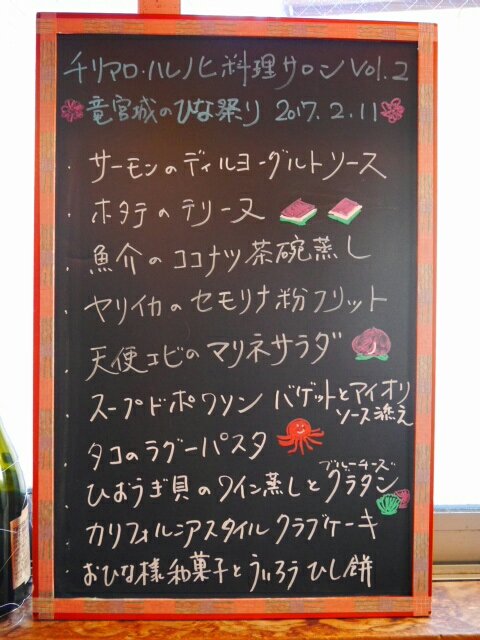 チリアロ・ハレノヒ料理サロン Vol.2
竜宮城のひな祭り 2017.2.11
・サーモンのディルヨーグルトソース
・ホタテのテリーヌ
・魚介のココナツ茶碗蒸し
・ヤリイカのセモリナ粉フリット
・天使エビのマリネサラダ
・スープドポワソン バゲットとアイオリソース添え
・タコのラグーパスタ
ブルーチーズ
・ひおうぎ貝のワイン蒸しとグラタン
・カリフォルニアスタイルクラブケーキ
・おひな様和菓子とういろうひし餅